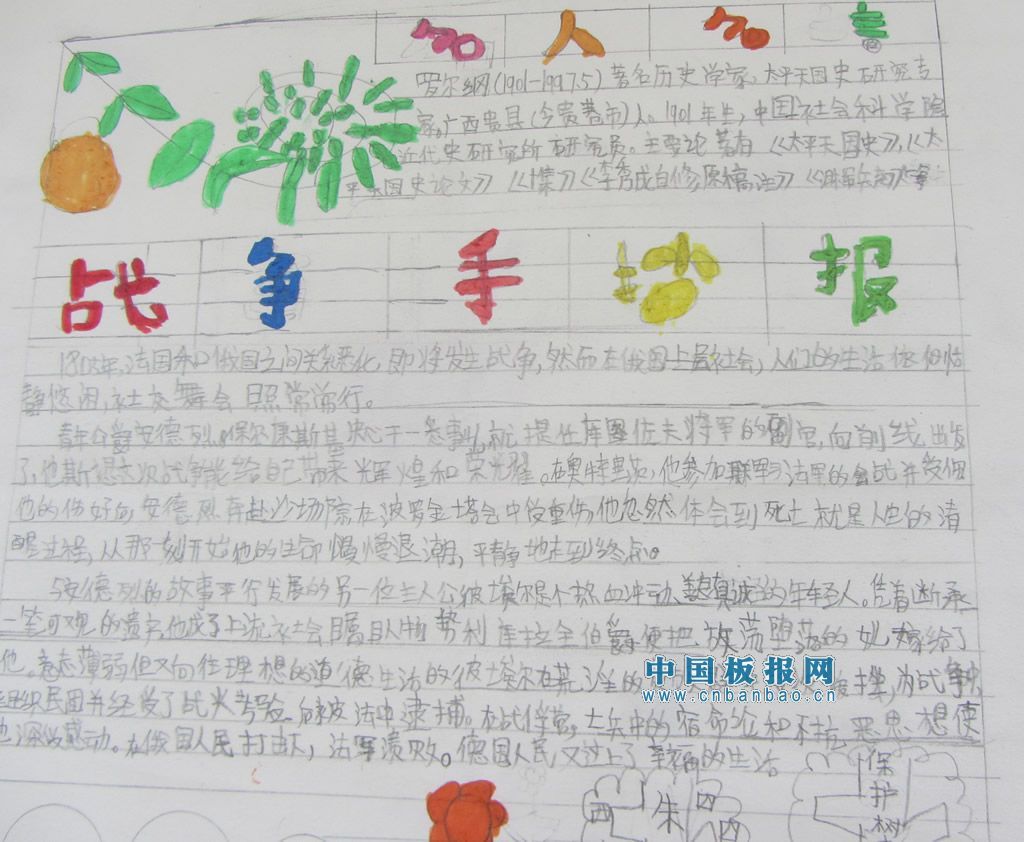 名人名言
罗尔纲(1901-1997.5)著名历史学家、太平天国史研究专
家。广西贵县(今贵港市)人。1901年生,中国社会科学院
近代史研究所研究员。主要论著有《太平天国史》,《太
平天国史论文》《集》《李秀成自传原稿注》
战争手抄报
法国和俄国之间关系恶化,即将发生战争,然而在俄国上层社会,人们的生活依旧恬
静悠闲,社交舞会照常举行。
青年公爵安德列.保尔康斯基决心干一番事业,就提任库图佐夫将军的副官,向前线出发
了,他期望这次战争能给自己带来辉煌和荣光耀。在奥特里茨,他参加联军与法军的会战并受伤
他的伤好后,安德烈奔赴沙场,在波罗金塔会中受重伤,他忽然体会到死亡就是人生的清
醒过程,从那刻开始他的生命慢慢退潮,平静地走到终点。
与安德列的故事平行发展的另一位主人公彼埃尔是个热血冲动、真诚的年轻人。凭着断承
一笔可观的遗产,他成了上流社会瞩目人物,势利库拉金伯爵便把放荡堕落的女儿嫁给了
他。意志薄弱但又向往理想的道德生活的彼埃尔在荒淫的
组织民团并经受了战火考验、后来被法中逮捕。在战俘营,士兵中的宿命论和不抗恶思想使
他深以感动。在俄国人民打击下,法军溃败。德国人民又过上了幸福的生活
中国板报网
www.cnbanbao.cn
西 朱 四 四
保护树